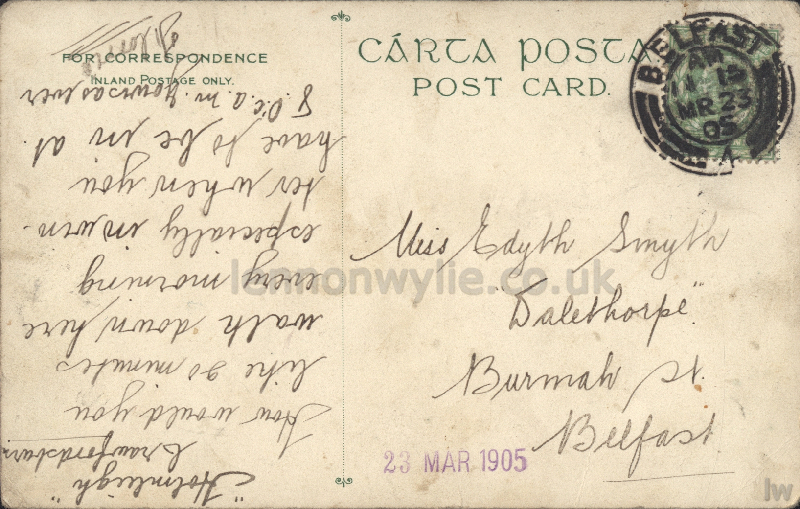 FOR CORRESPONDENCE
INLAND POSTAGE ONLY.
CÁRTA POSTA
POST CARD.
BELFAST
AM
11 15
MR 23
05
Miss Edyth Smyth
"Dalethorpe"
Burmah St.
Belfast
23 MAR 1905
"Holmleigh"
Crawfordsburn
How would you
like 20 minutes
walk down here
every morning
especially in win-
ter when you
have to be in at
8 o'c a.m. Yours as ever
lennonwylie.co.uk
lw